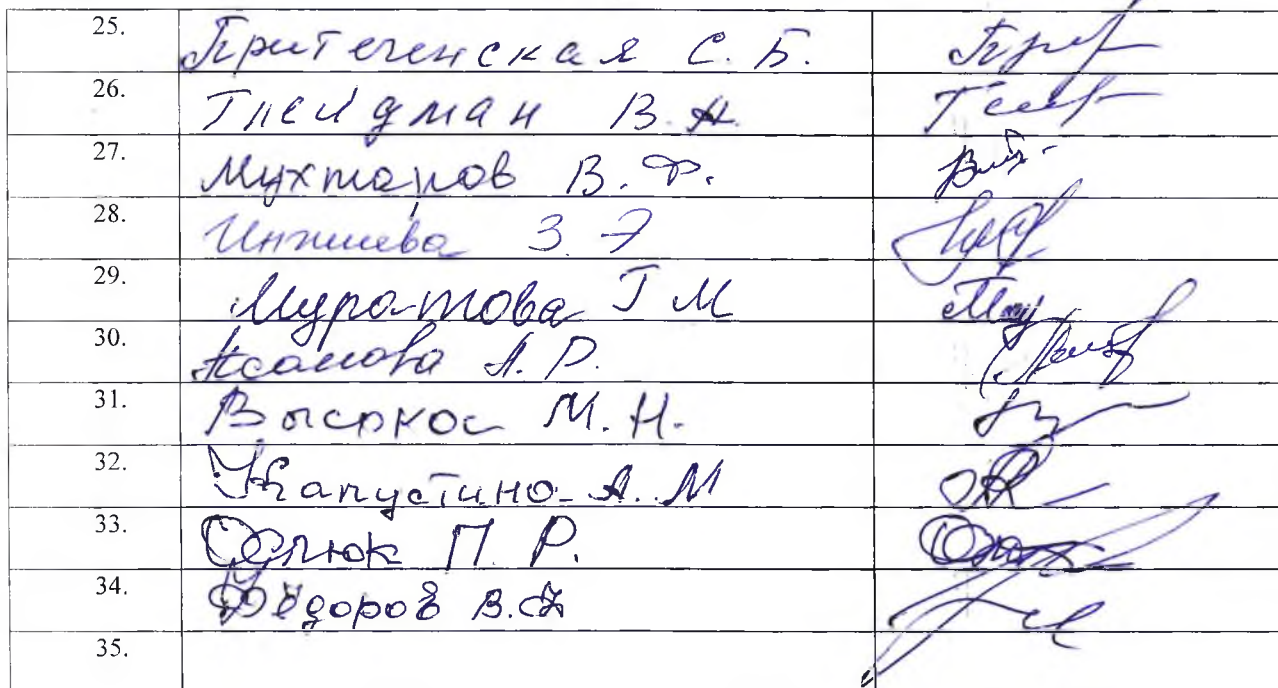 25. Притеченская С. Б.
26. Глейдман В. Н.
27. Мухтаров В. Ф.
28. Инжиева З. Э
29. Муратова Г М
30. Асанова А. Р.
31. Высокос М. Н.
32. Капустина А. М
33. П. Р.
34. Фёдоров В.
35.